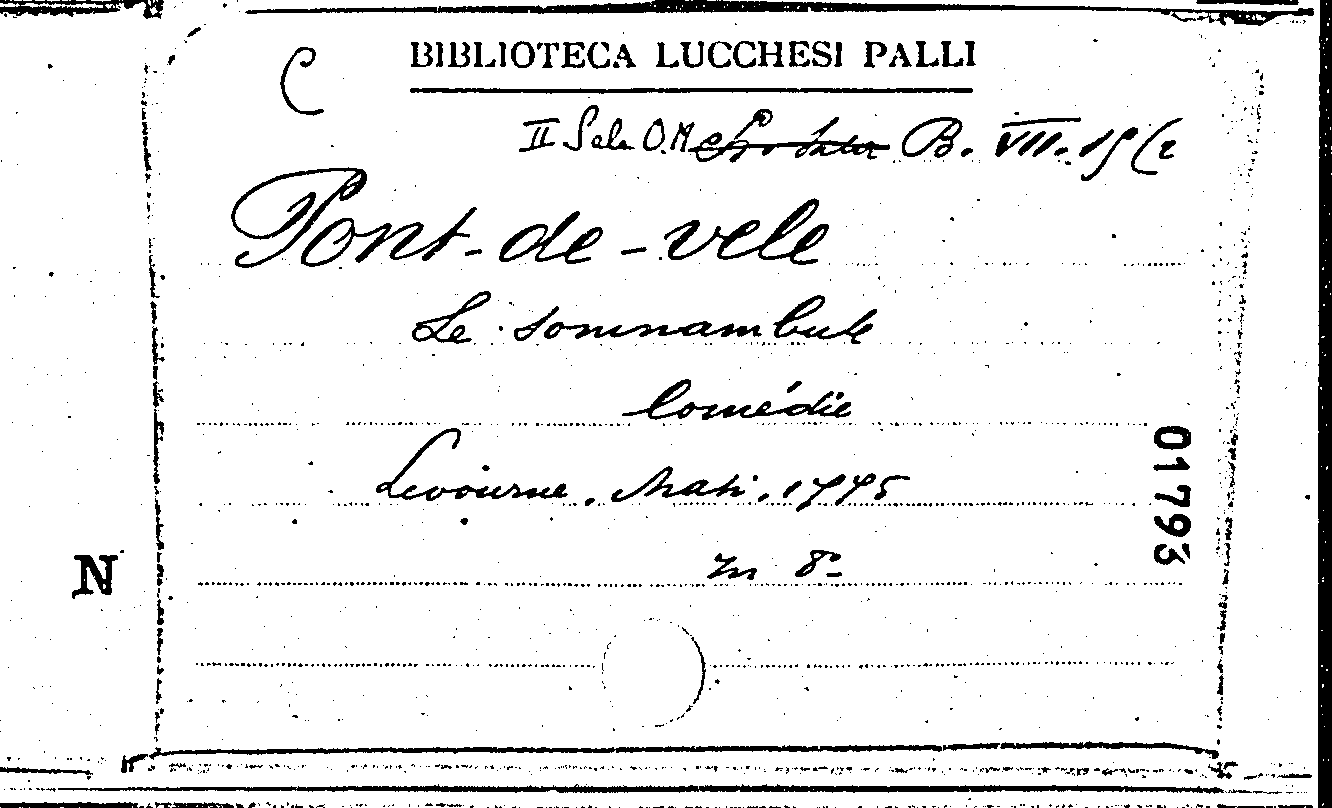 C
BIBLIOTECA LUCCHESI PALLI
II Sala O.A B. VIII. 15 (2
Pont-de-vele
Le somnambule
Comédie
Livourne, Masi, 1775
in 8º
01793
N